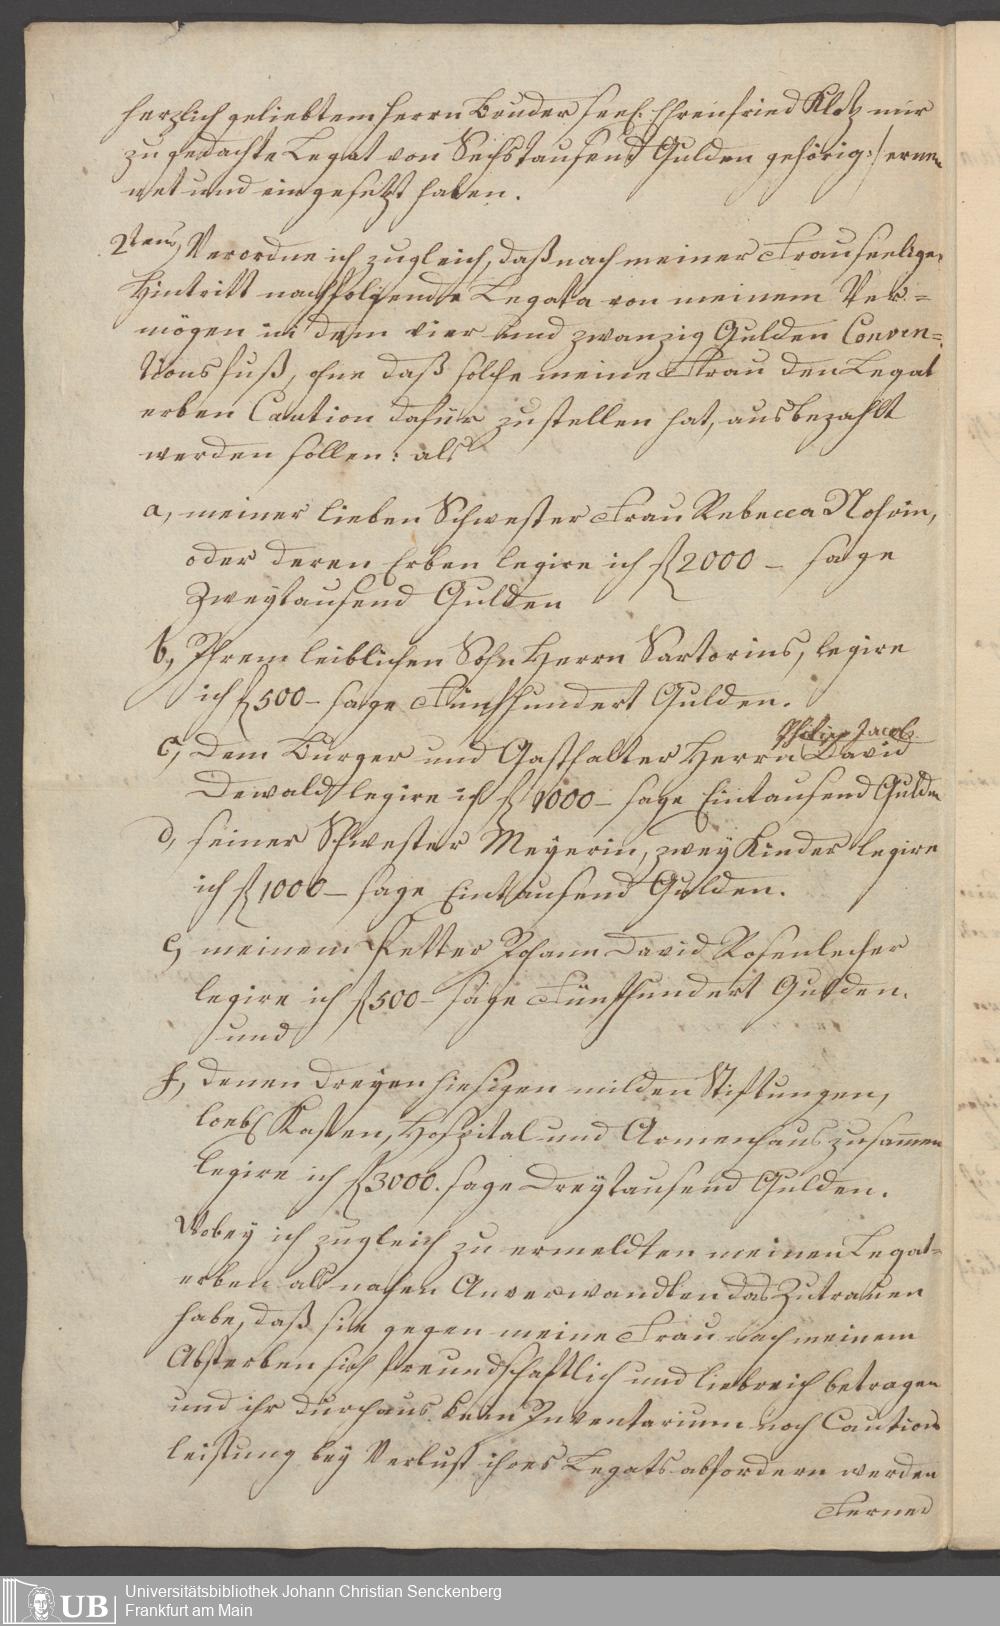 herzlich geliebtem Herrn Bruder seel. Ehrenfried Klotz mir
zu gedachte Legat von Sechstausend Gulden gehörig:/ ernen
net und eingesetzt haben.
2tens, Verordne ich zugleich, daß nach meiner Frau seeligen
Hintritt nachfolgende Legata von meinem Ver-=
mögen in dem vier und zwanzig Gulden Conven=
tions fuß, ohne daß solche meine Frau den Legat
erben Caution dafür zustellen hat, ausbezahlt
werden sollen: als
a, meiner lieben Schwester Frau Rebecca
oder deren Erben legire ich f 2000 – sage
Zweytausend Gulden
b, Ihrem leiblichen Sohn Herrn Sartorius, legire
ich f 500 – sage Fünfhundert Gulden.
Philipp Jacob
c, dem Burger und Gasthalter Herrn David
Dewald legire ich f 1000 – sage Eintausend Gulden
d, seiner Schwester Meyerin, zwey Kinder legire
ich f 1000 – sage Eintausend Gulden.
e, meinem Vetter Johann David Rosenlecher
legire ich f 500 – sage Fünfhundert Gulden.
und
f, denen dreyen hiesigen milden Stiftungen,
loebl Kasten, Hospital und Armenhaus zusammen
legire ich f 3000. sage Dreytausend Gulden.
Wobey ich zugleich zu ermeldten meinen Legat=
erben als nahen Anverwandten das Zutrauen
habe, daß sie gegen meine Frau nach meinem
Absterben sich freundschaftlich und liebreich betragen
und ihr durchaus kein Inventarium noch Cautions
leistung bey Verlust ihres Legats abfordern werden
Ferner
UB
Universitätsbibliothek Johann Christian Senckenberg
Frankfurt am Main